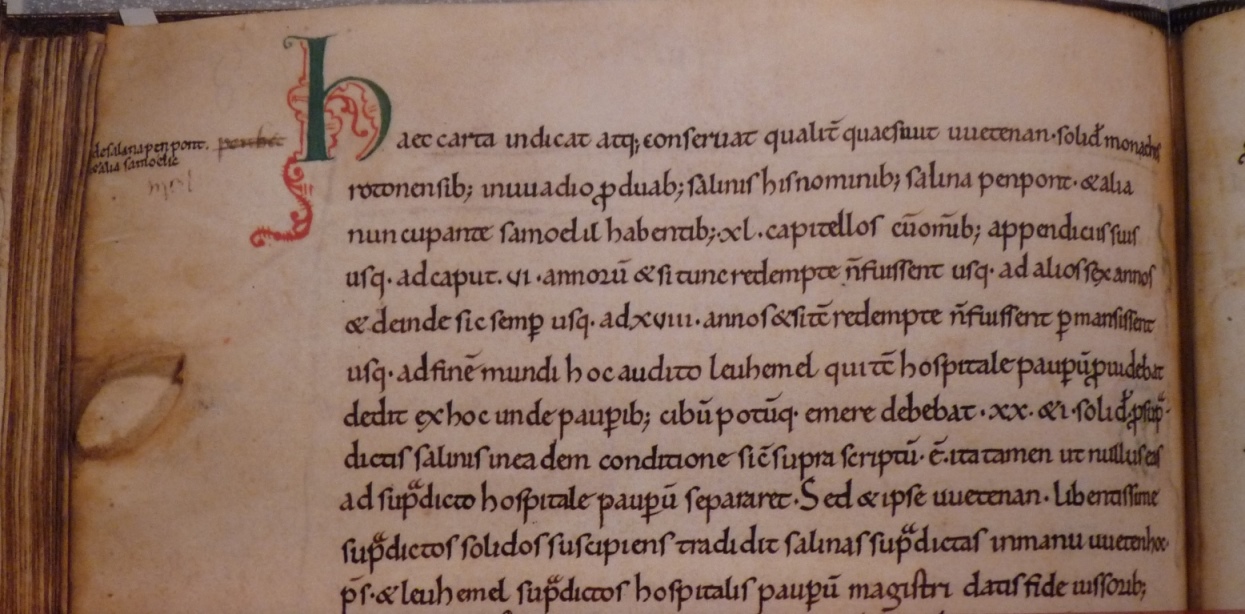 de salina penpont.
& alia samoelie
Haec carta indicat atq; conseruat qualit̄ quaesiuit uuetenan · solid̄ monachis
rotonensib; inuuadio ꝓ duab; salinis his nominib; salina penpont · & alia
nuncupante samoelil habentib; · xl · capitellos cū om̄ib; appendiciis suis
usq · ad caput · vi · annoꝝū & si tunc redempte n̄ fuissent usq · ad alios sex annos
& deinde sic semꝑ usq · ad xviii · annos & si tc̄ redempte n̄ fuissent ꝑmansissent
usq · ad finē mundi hoc audito leuhemel qui tc̄ hospitale pauꝑū ꝓuidebat
dedit ex hoc unde pauꝑib; cibū potūq · emere debebat · xx · & i · solid̄ ꝓ sup̄
dictis salinis inea dem conditione sic̄ supra scriptū · ē · ita tamen ut nullus eas
ad sup̄dicto hospitale pauꝑū separaret · Sed & ipse uuetenan · libentissime
sup̄dictos solidos suscipiens tradidit salinas sup̄dictas inmanu uuetenhoc ·
p̄s · & leuhemel sup̄dictos hospitalis pauꝑū magistri datis fide iussorib;